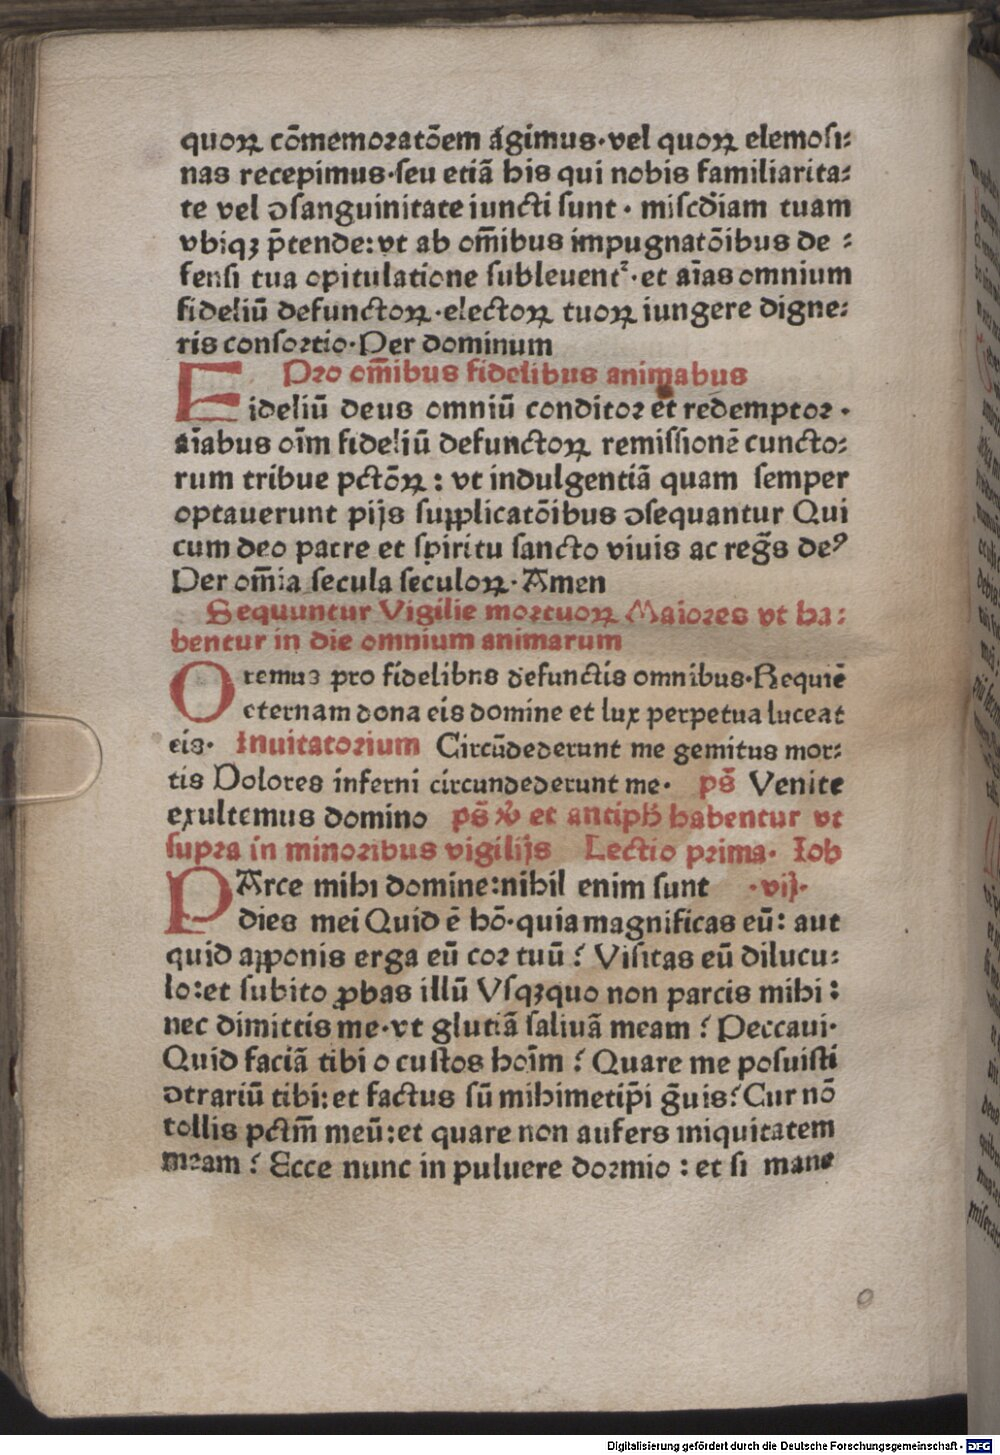 quoꝝ cōmemoꝛatōem ágimus·vel quoꝝ elemosi⸗
nas recepimus·seu etiā his qui nobis familiarita⸗
te vel ↄsanguinitate iuncti sunt · misc̄diam tuam
vbiqꝫ p̄tende:vt ab om̄ibus impugnatōibus de ⸗
fensi tua opitulatione subleuentᷣ·et aīas omnium
fideliū defunctoꝝ·electoꝝ tuoꝝ iungere digne⸗
ris consoꝛtio·Per dominum
Pꝛo om̄ibus fidelibus animabus
Fideliū deus omniū conditoꝛ et redemptoꝛ ·
aīabus oīm fideliū defunctoꝝ remissionē cuncto⸗
rum tribue pctōꝝ : vt indulgentiā quam semper
optauerunt pijs supplicatōibus ↄsequantur Qui
cum deo patre et spiritu sancto viuis ac reg̃s deꝰ
Per om̄ia secula seculoꝝ·Amen
Sequuntur Vigilie moꝛtuoꝝ Maioꝛes vt ha⸗
bentur in die omnium animarum
Oremus pro fidelibns defunctis omnibus·Requiē
eternam dona eis domine et lux perpetua luceat
eis· Inuitatoꝛium Circūdederunt me gemitus mor⸗
tis Dolores inferni circundederunt me· ps̄ Venite
exultemus domino ps̄ et antiph̄ habentur vt
supꝛa in minoꝛibus vigilijs Lectio pꝛima· Iob
PArce mihi domine:nihil enim sunt ·vij·
dies mei Quid ē hō·quia magnificas eū: aut
quid apponis erga eū coꝛ tuū ? Visitas eū dilucu⸗
lo:et subito ꝓbas illū Vsqꝫquo non parcis mihi :
nec dimittis me·vt glutiā saliuā meam ? Peccaui·
Quid faciā tibi o custos hoīm ? Quare me posuisti
ↄtrariū tibi:et factus sū mihimetip̄i g̃uis? Cur nō
tollis pctm̄ meū:et quare non aufers iniquitatem
meam ? Ecce nunc in puluere doꝛmio : et si mane
Digitalisierung gefördert durch die Deutsche Forschungsgemeinschaft - DFG